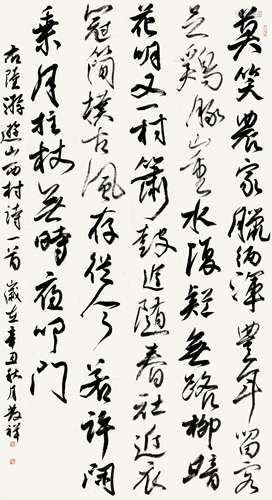 莫笑農家臘酒渾豐年留客
足鷄豚山重水復疑無路柳暗
花明又一村簫鼓追隨春社近衣
冠簡樸古風存從今若許閑
乘月拄杖無時夜叩門
右陸游遊山西村詩一首 歲在辛丑秋月發祥